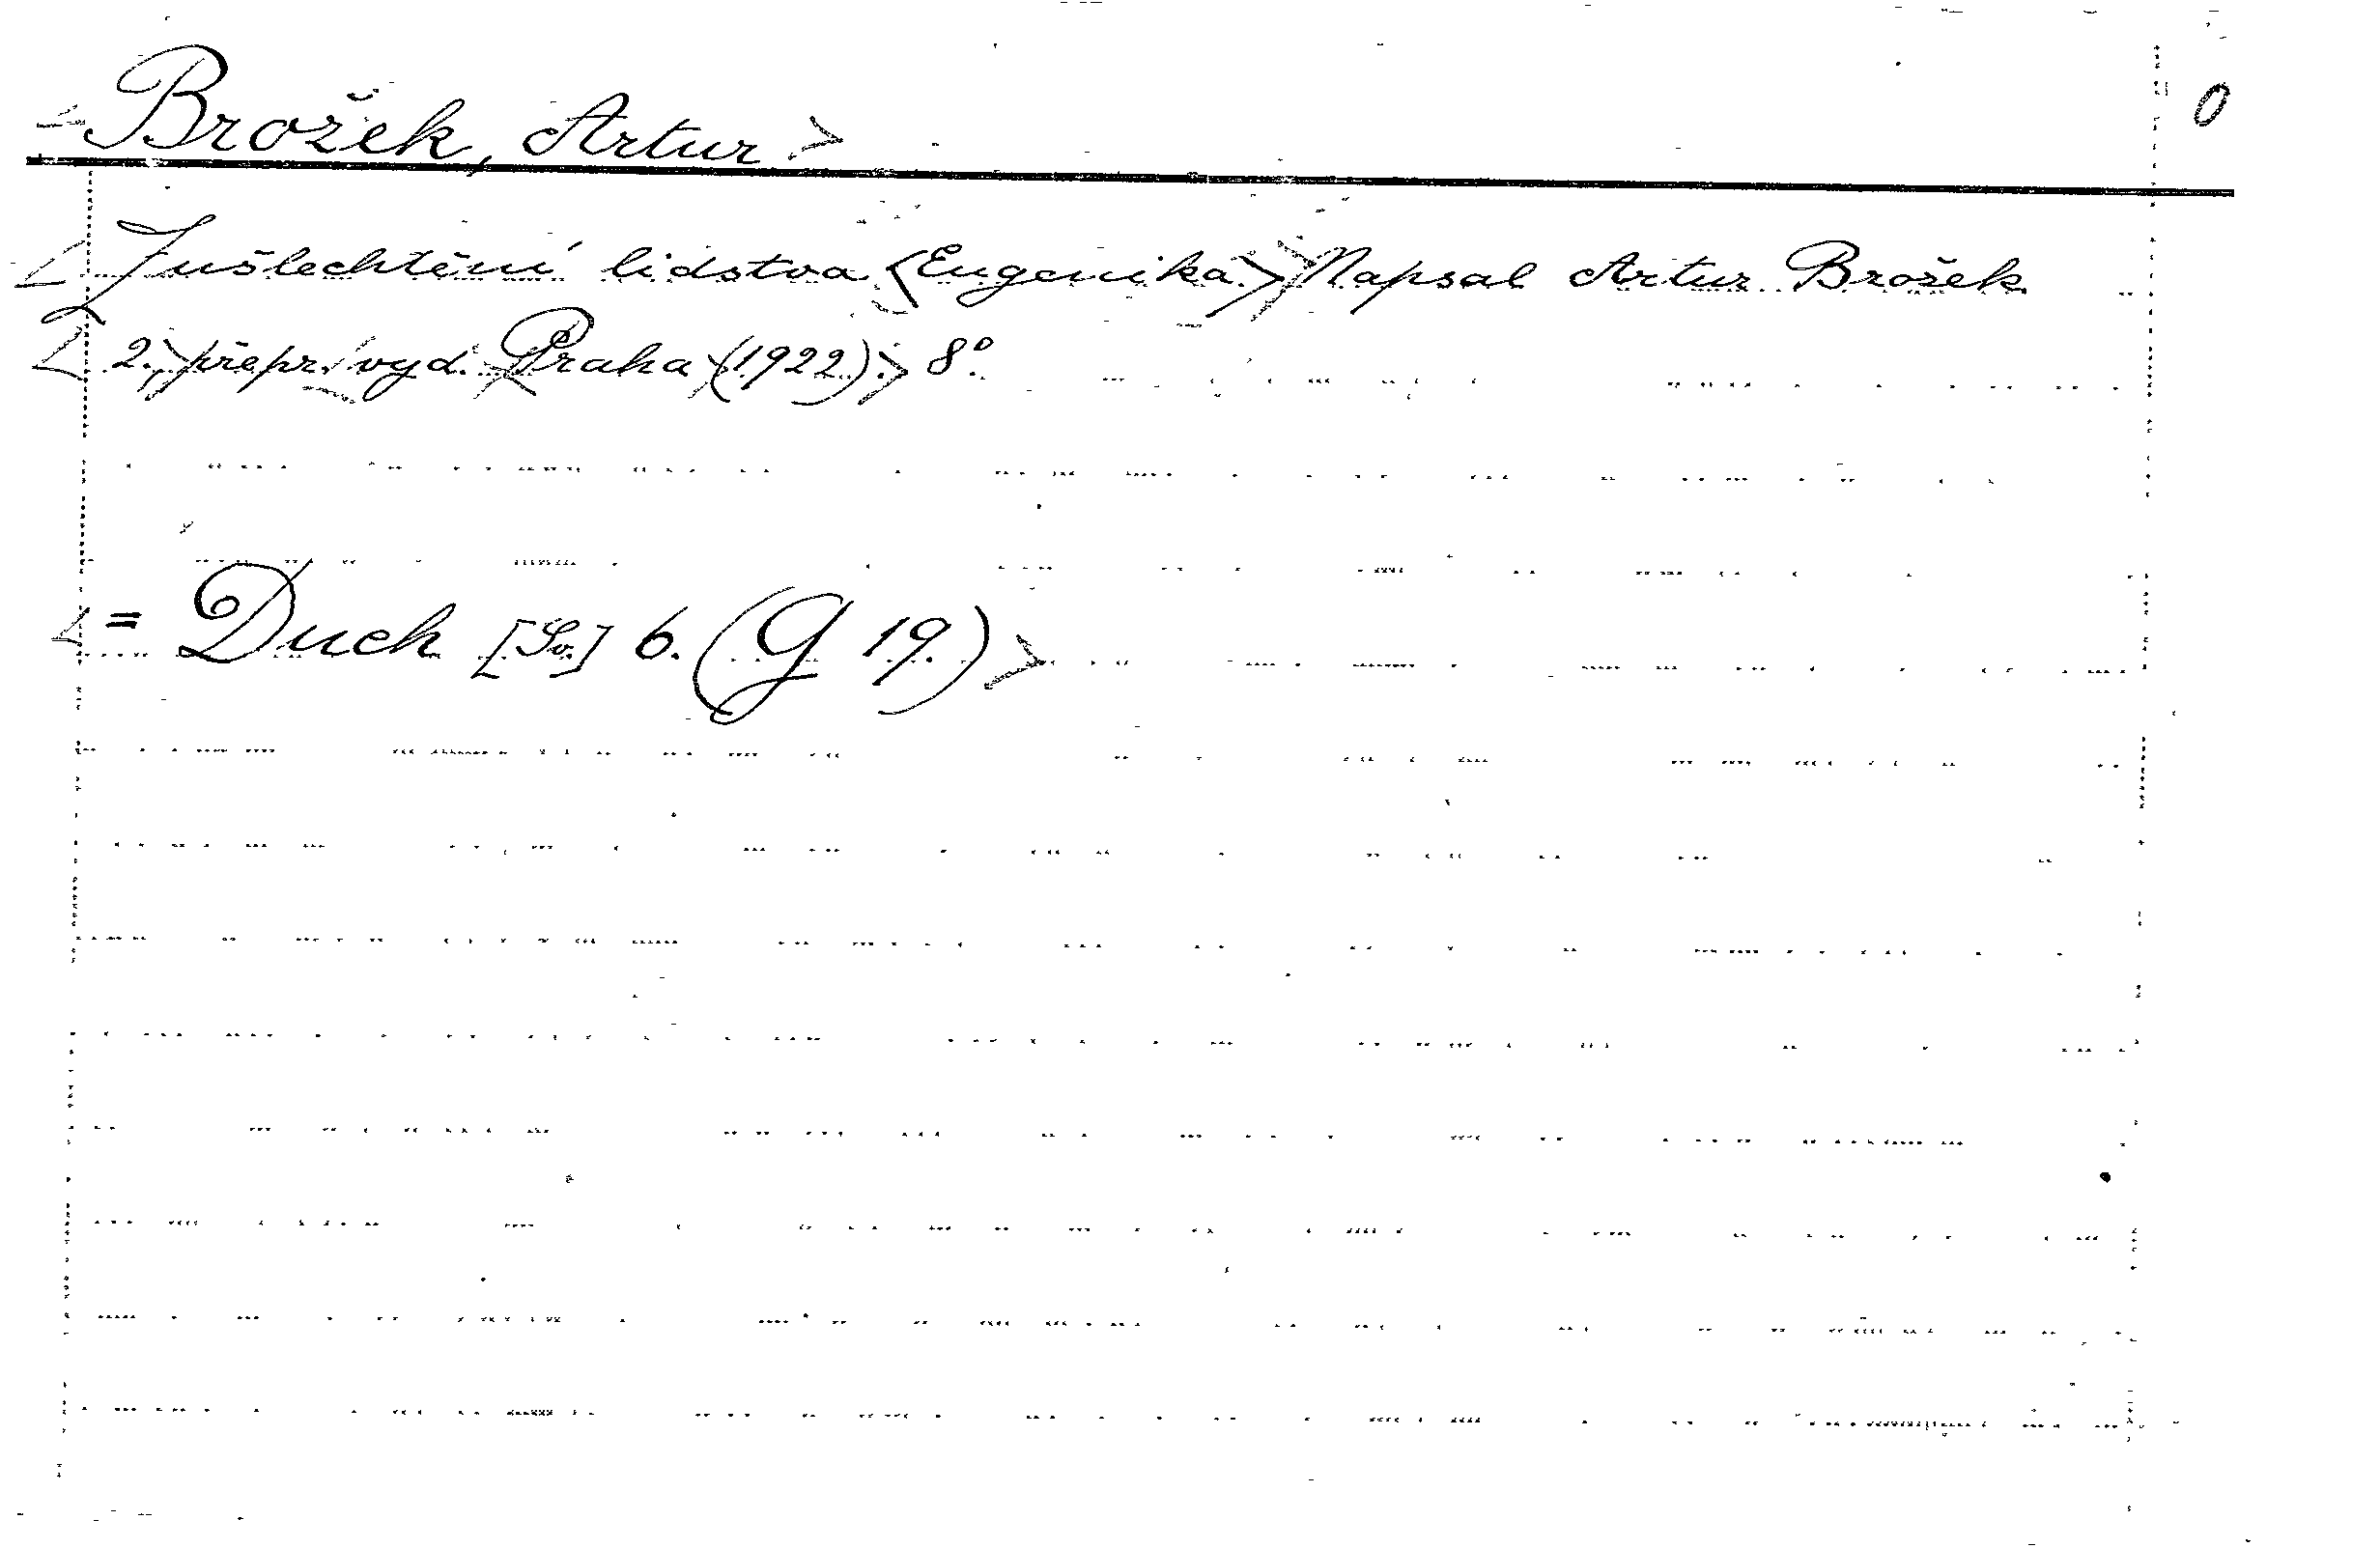 Brožek, Artur 0
Zušlechtění lidstva (Eugenika) Napsal Artur Brožek
2. přepr. vyd. Praha (1922). 8°.
= Duch [Sv.] 6. (G 19.)